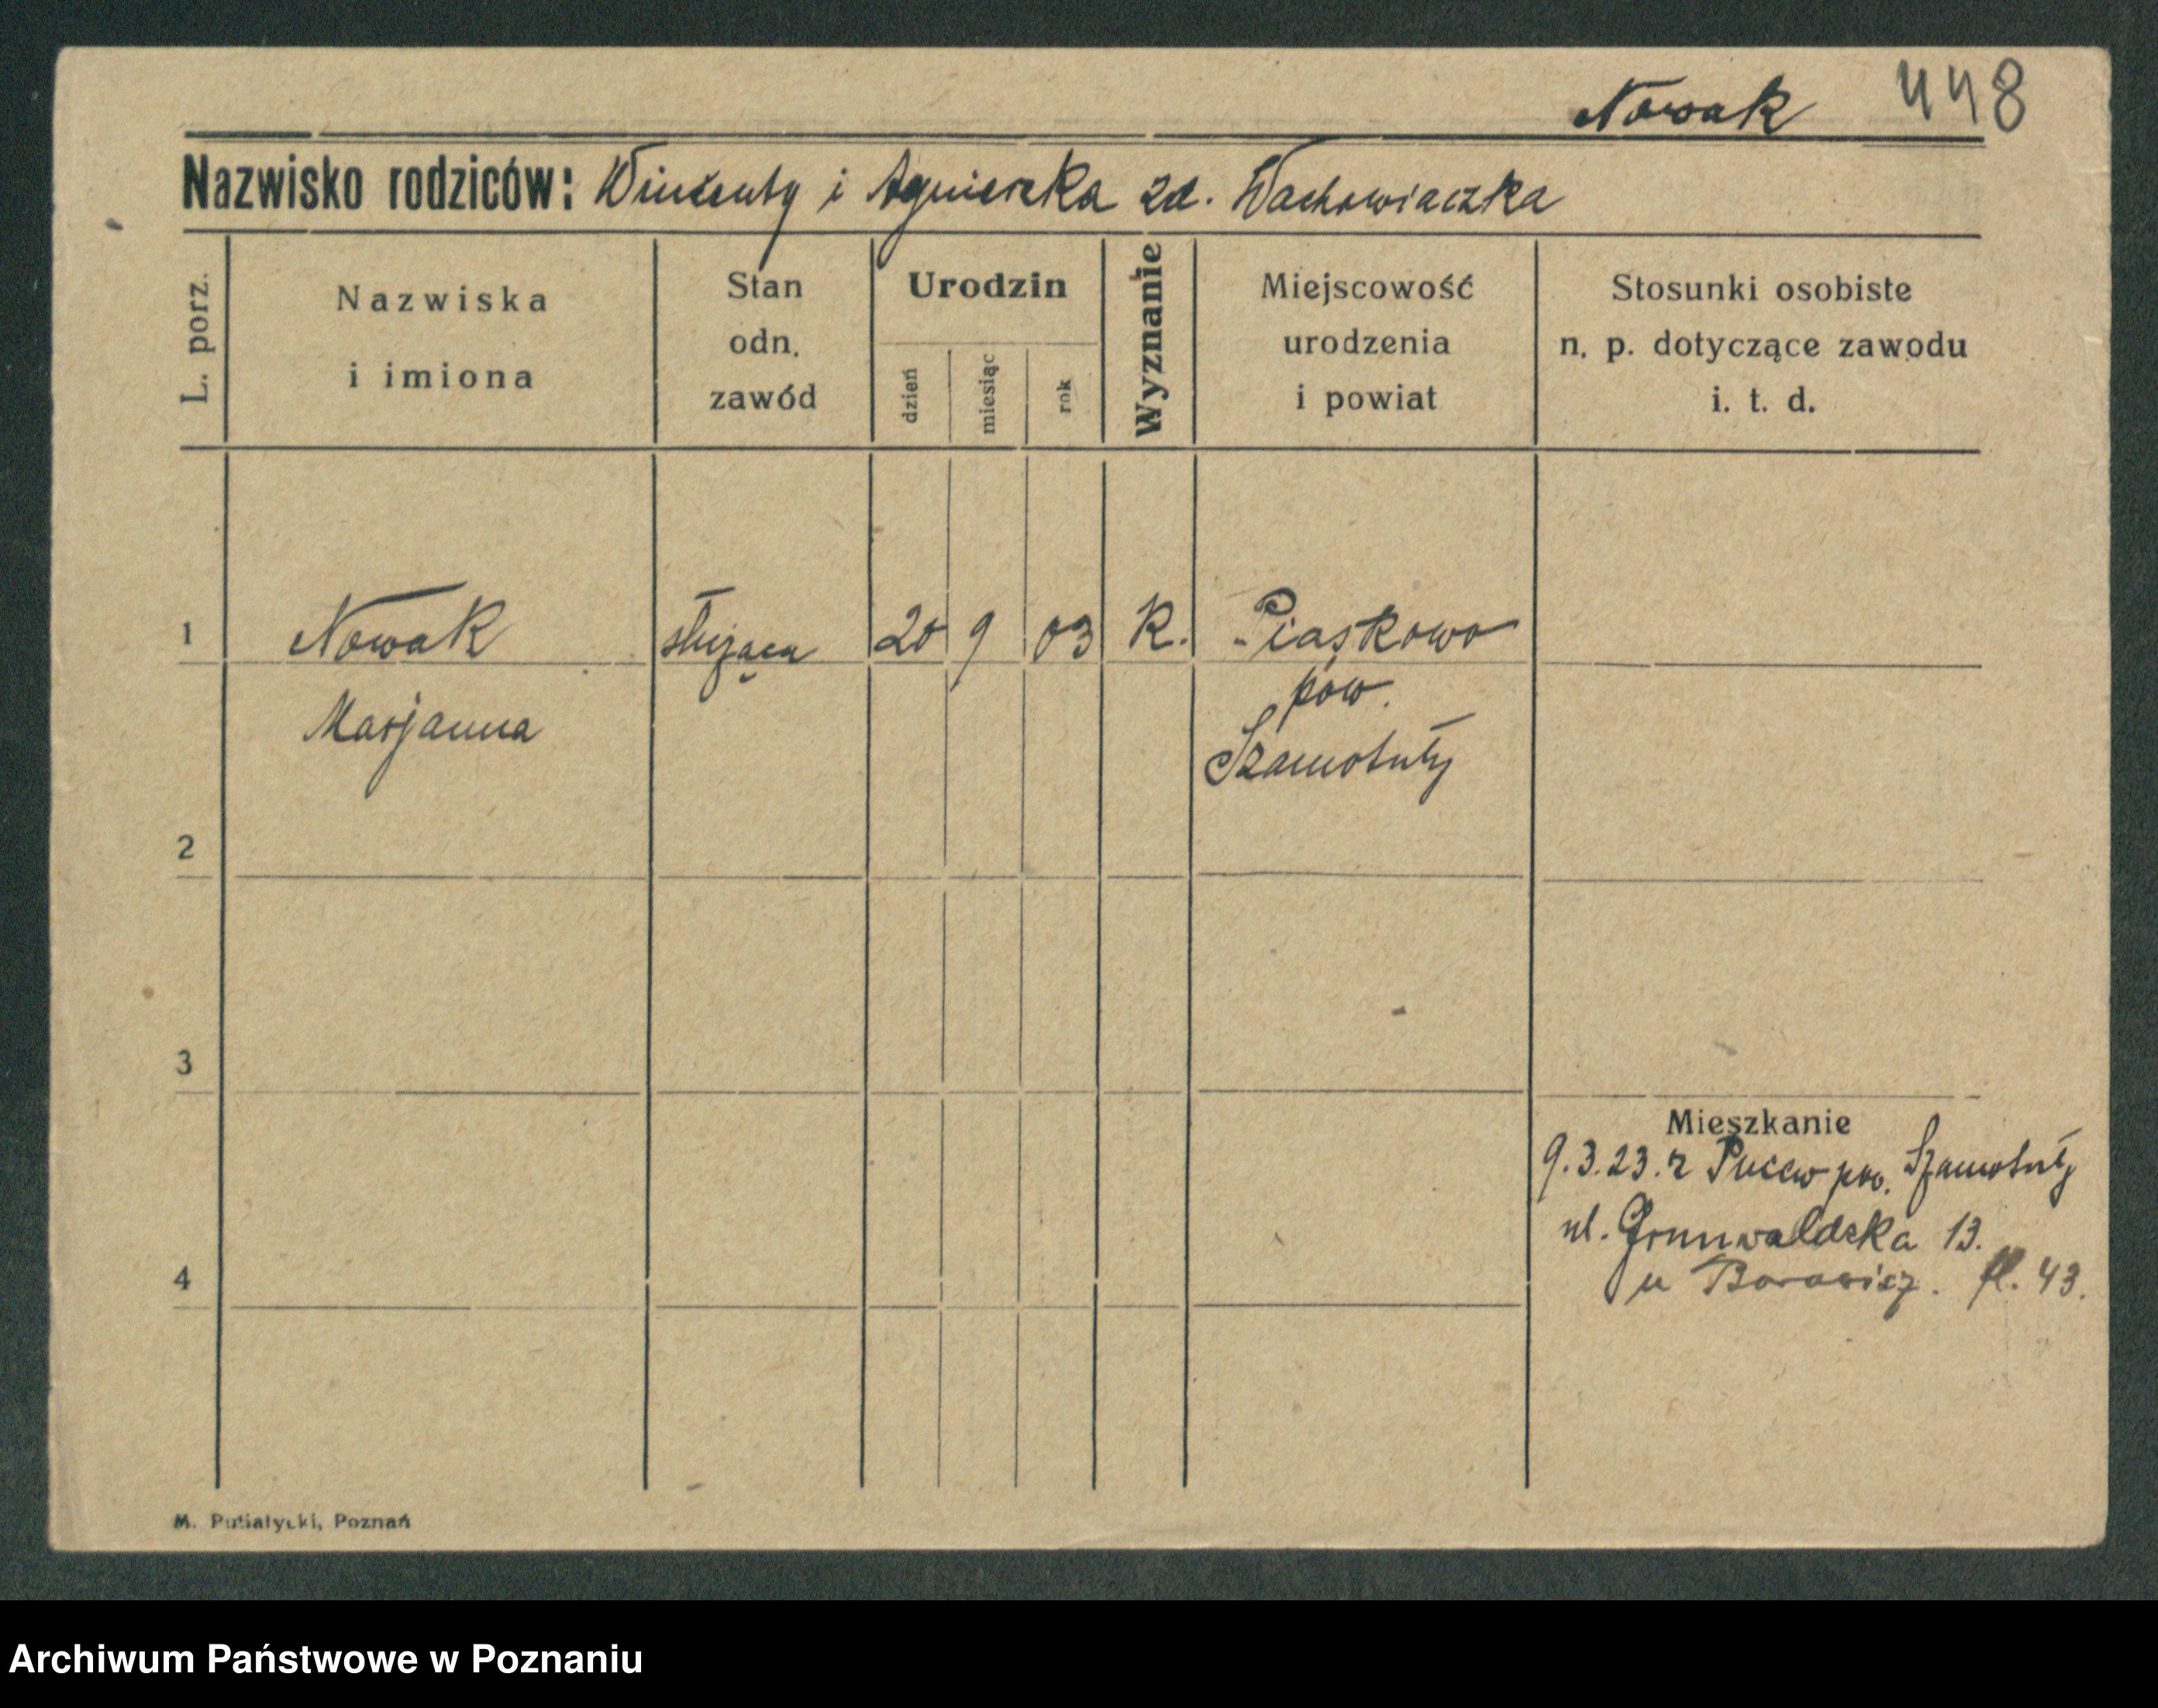 Nowak 448
Nazwisko rodziców: Wincenty i Agnieszka zd. Wachowiaczka
L. porz.
Nazwiska
i imiona
Stan
odn.
zawód
Urodzin
dzień
miesiąc
rok
Wyznanie
Miejscowość
urodzenia
i powiat
Stosunki osobiste
n. p. dotyczące zawodu
i. t. d.
1 Nowak służąca 20 9 03 K. Piaskowo
Marjanna
pow.
Szamotuły
2
3
4
Mieszkanie
9.3.23. z pow. Szamotuły
ul. Grunwaldzka 13.
u 43.
M. Putiatycki, Poznań
Archiwum Państwowe w Poznaniu